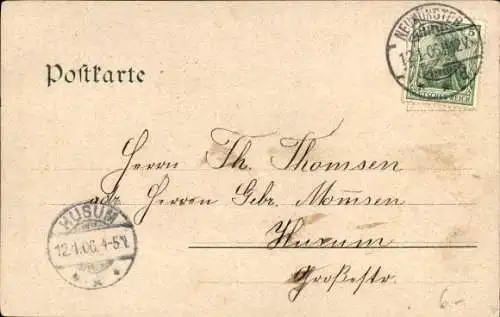 NEUMÜNSTER
12.1.06.
DEUTSCHES REICH
Postkarte
Herrn Th. Thomsen
adr. Herren Gebr. Momsen
Husum
Großestr.
HUSUM
12.1.06.4-5N.
6-